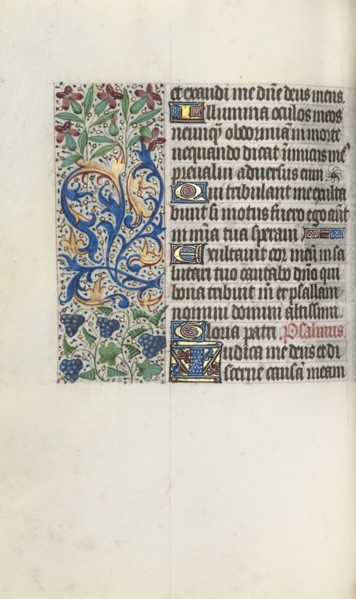 et exaudi me dñe deus meus.
Illumina oculos meos
ne unqȝ obdormiã in morte
nequando dicat inimicus meus
preualui aduersus eum
Qui tribulant me exulta
bunt si motus fuero ego aut̃
in mia tua speraui
Exultauit cor meũ in sa
lutari tuo cantabo dño qui
bona tribuit m̃ et psallam
nomini domini altissimi.
Gloria patri. Psalmus
Iudica me deus et di
scerne causã meam